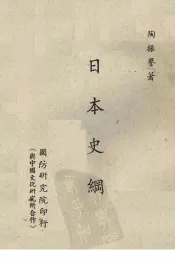 陶振譽著
日本史綱
國防研究院印行
（與中國文化研究所合作）